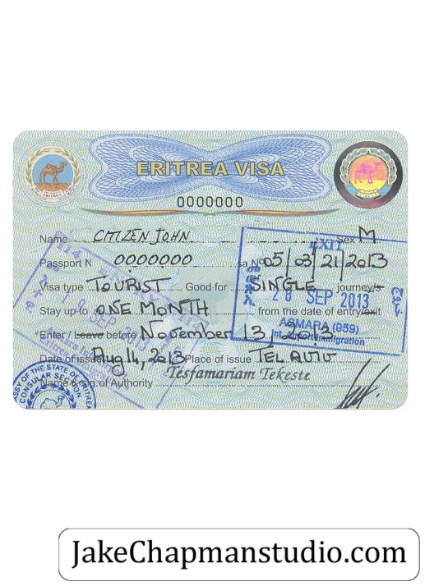 ERITREA VISA
0000000
Name CITIZEN JOHN Sex M
Passport N 0000000 sa No 05/03/21/2013
Visa type TOURIST Good for SINGLE journey/s
Stay up to ONE MONTH from the date of entry/exit
Enter / Leave before November 13, 2013
Date of issue Aug 14, 2013 Place of issue TEL AVIV
Name & sign. of Authority Tesfamariam Tekeste
EXIT
28 SEP 2013
ASMARA (059)
Immigration
SY OF THE STATE OF ERITREA
CONSULAR SECTION
JakeChapmanstudio.com